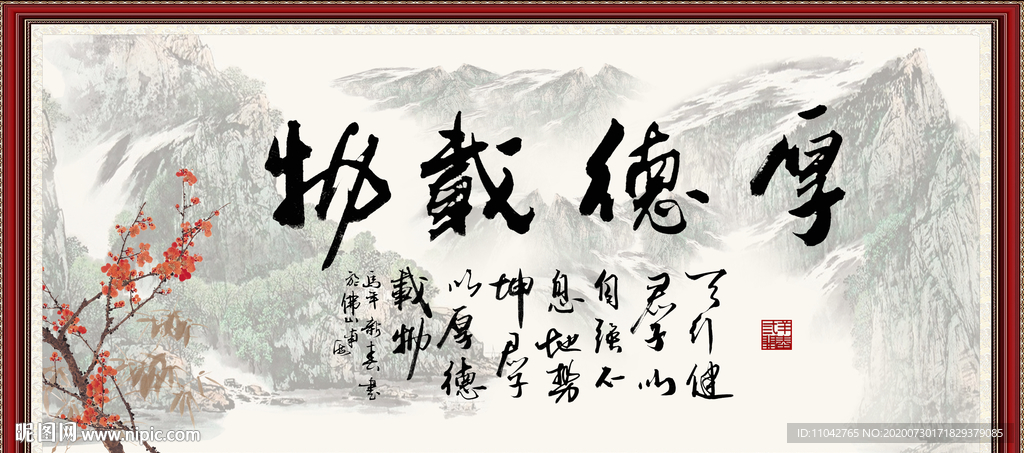 厚德載物
天行健
君子以
自強不
息地勢
坤君子
以厚德
載物
馬年新春書
於佛山南海
昵图网 www.nipic.com
ID:11042765 NO:20200730171829379085